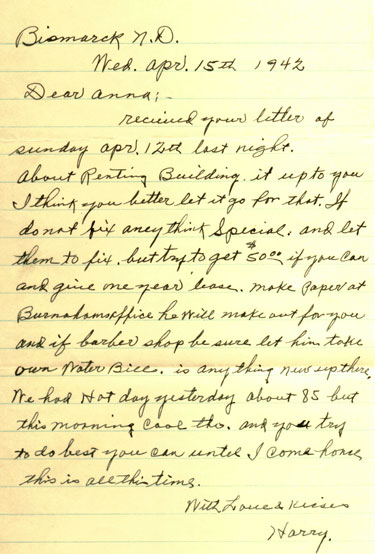 Bismarck N.D.
Wed. Apr. 15th 1942
Dear Anna;-
recieved your letter of
sunday apr. 12th last night.
About Renting Building. it up to you
I think you better let it go for that. If
do not fix aney think Special. and let
them to fix. but try to get $50.00 if you can
and give one year lease. make Paper at
Burnahams office he will make out for you
and if barber shop be sure let him take
own Water Bill. is any thing new up there.
We had Hot day yesterday about 85 but
this morning Cool tho. and you try
to do best you can until I come home
this is all this time.
With Love & Kisses
Harry.